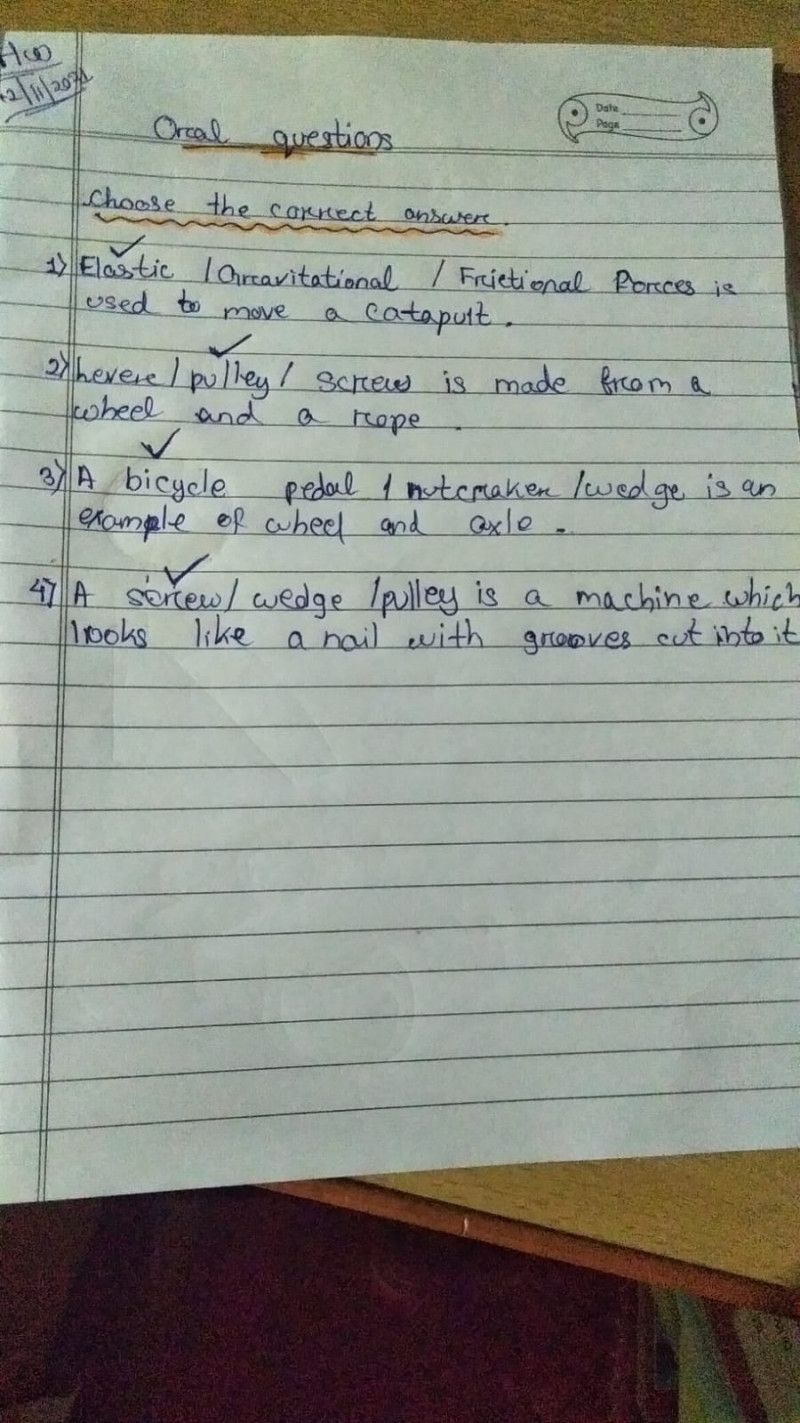 HW
2/11/2021
Date
Page
Oral questions
Choose the correct answer.
1) Elastic / Gravitational / Frictional Forces is
used to move a catapult.
2) Lever / pulley / screw is made from a
wheel and a rope.
3) A bicycle pedal / nutcraker / wedge is an
example of wheel and axle.
4) A screw / wedge / pulley is a machine which
looks like a nail with grooves cut into it